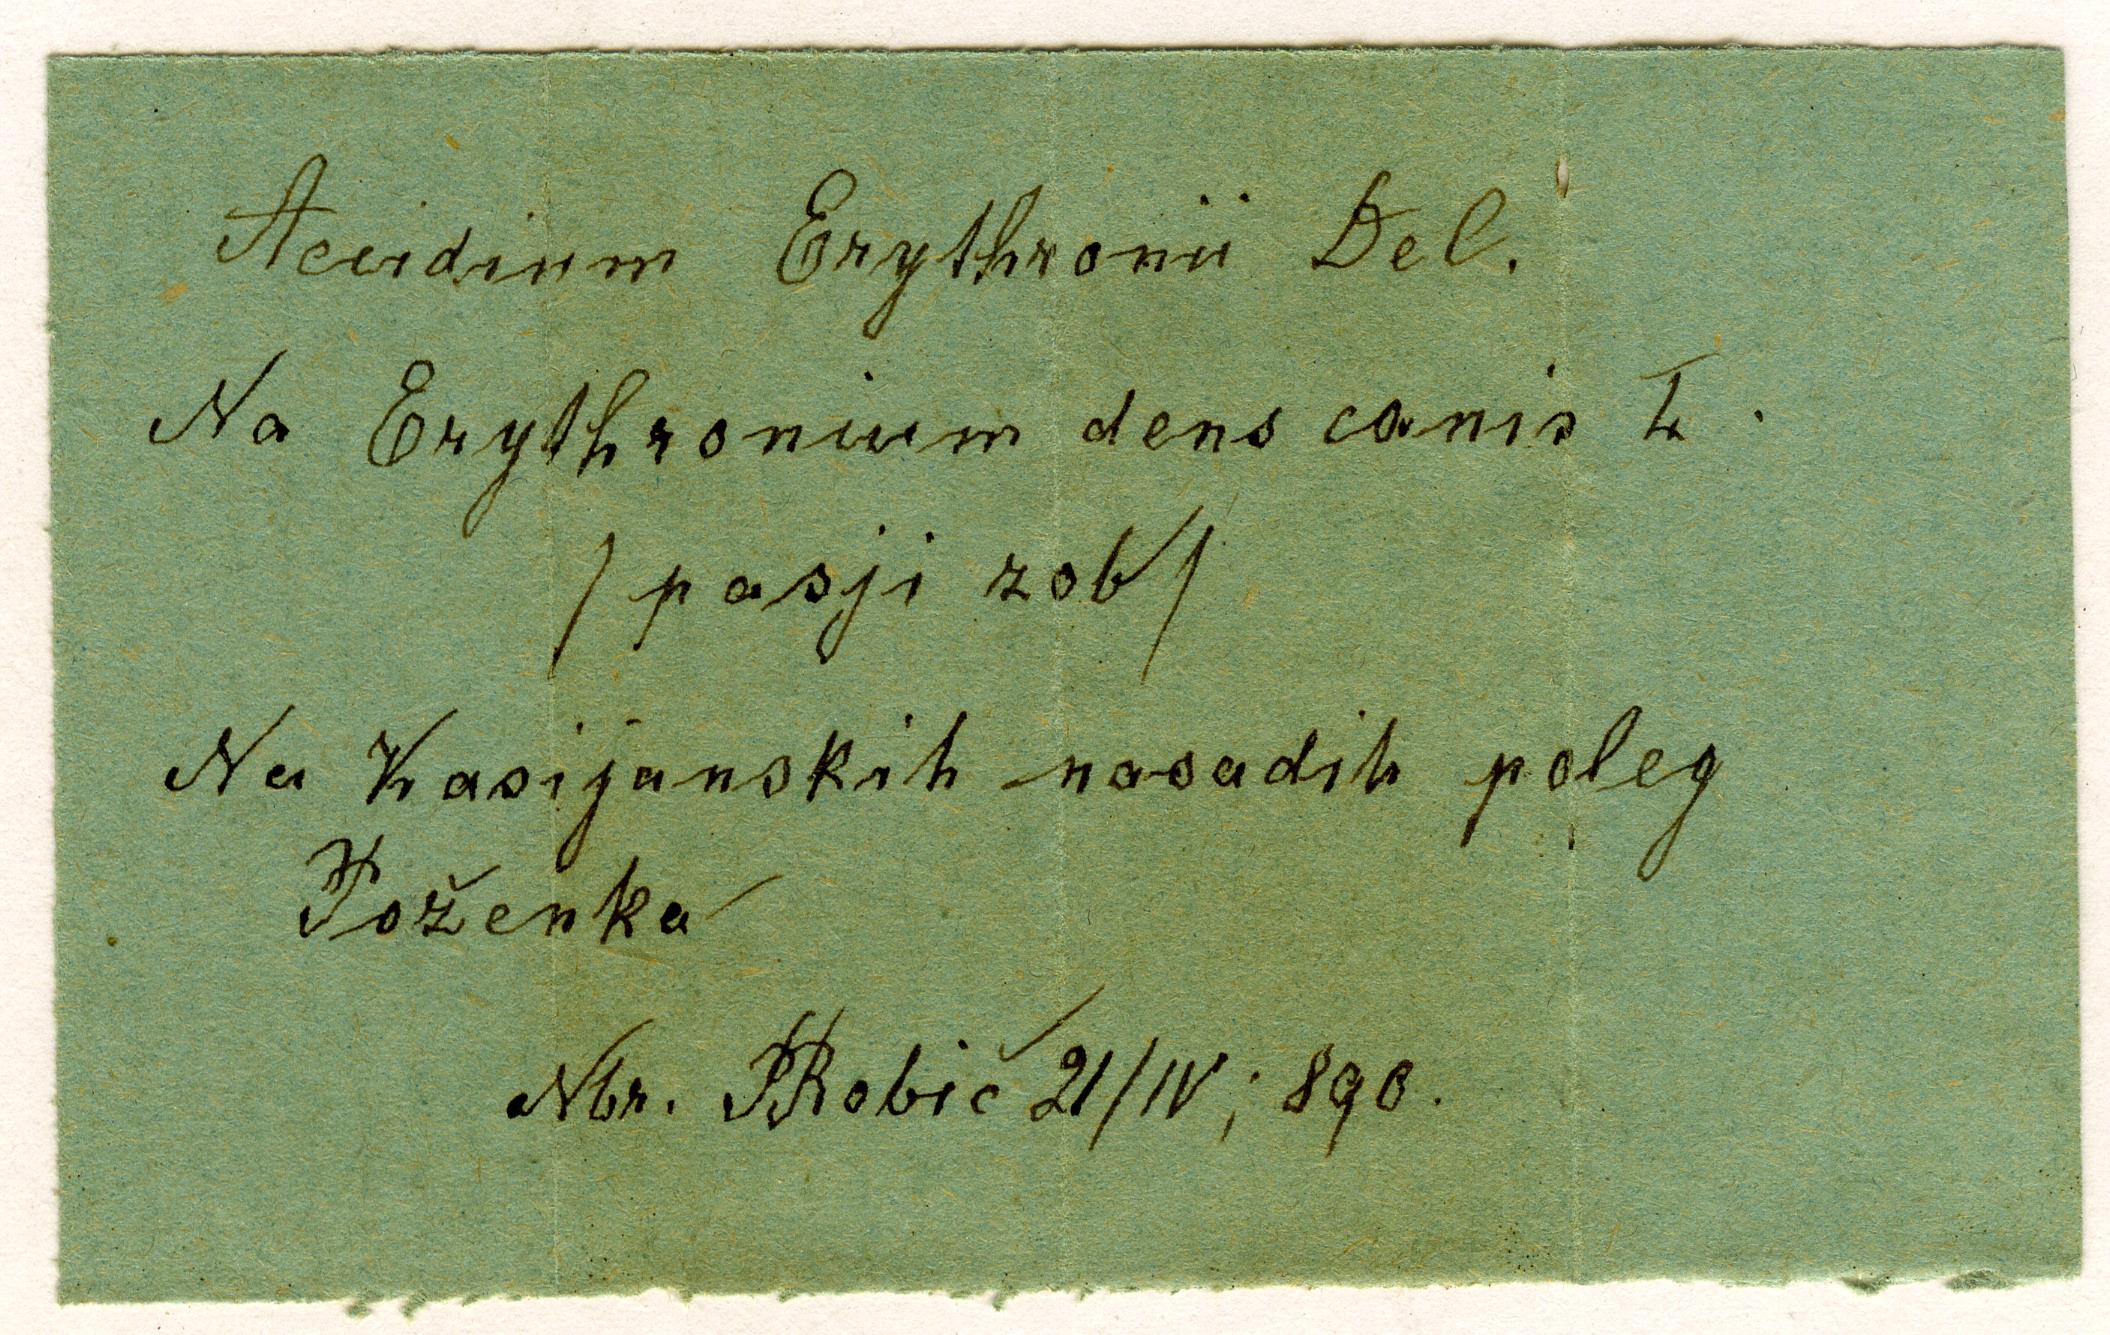 Aecidium Erythronii DeC.
Na Erythronium dens canis L.
/pasji zob/
Na Kasijanskih nasadih poleg
Poženka
Nbr. SRobič 21/IV; 890.